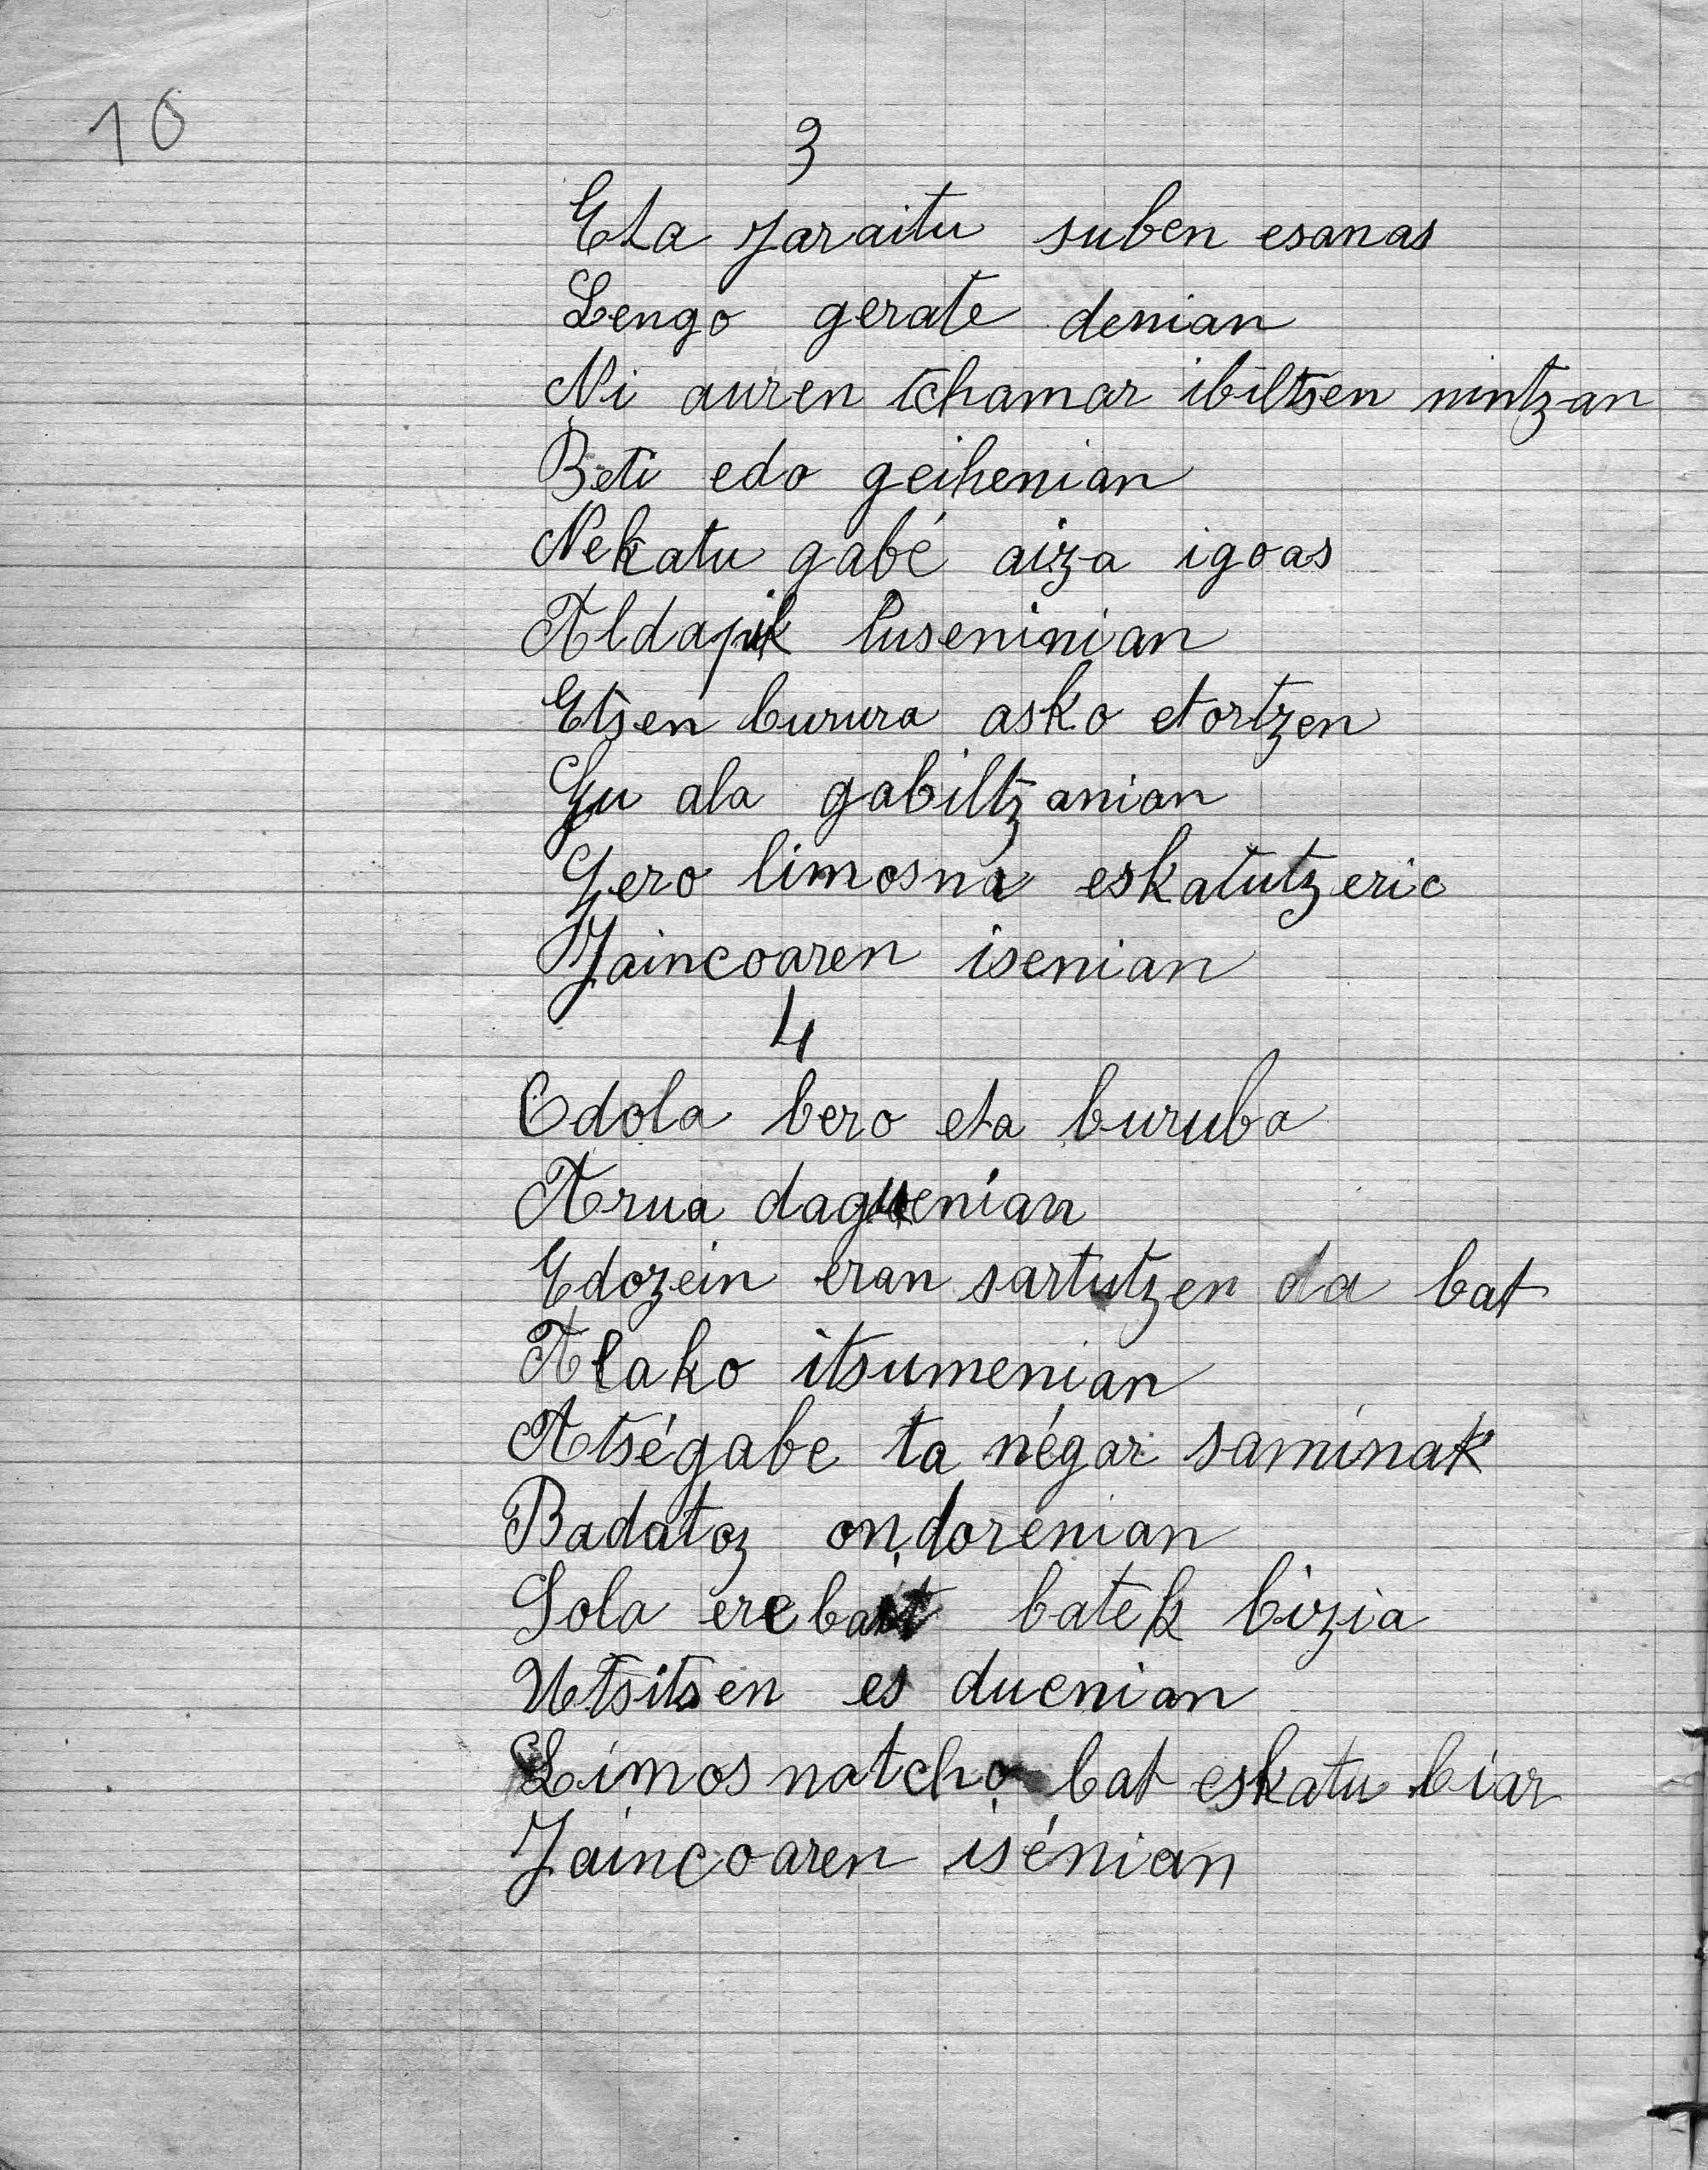 10
3
Eta jaraitu suben esanas
Lengo gerate denian
Ni auren tchamar ibiltsen nintzan
Beti edo geihenian
Nekatu gabé aiza igoas
Aldapik luseninian
Etsen burura asko etortzen
Gu ala gabiltzanian
Gero limosna eskatutzeric
Jaincoaren isenian
4
Odola bero eta buruba
Arua daguenian
Edozein eran sartutzen da bat
Alako itsumenian
Atségabe ta négar saminak
Badatoz ondorénian
Sola erebait batek bizia
Utsitsen es duenian
Limosnatcho bat eskatu biar
Jaincoaren isénian